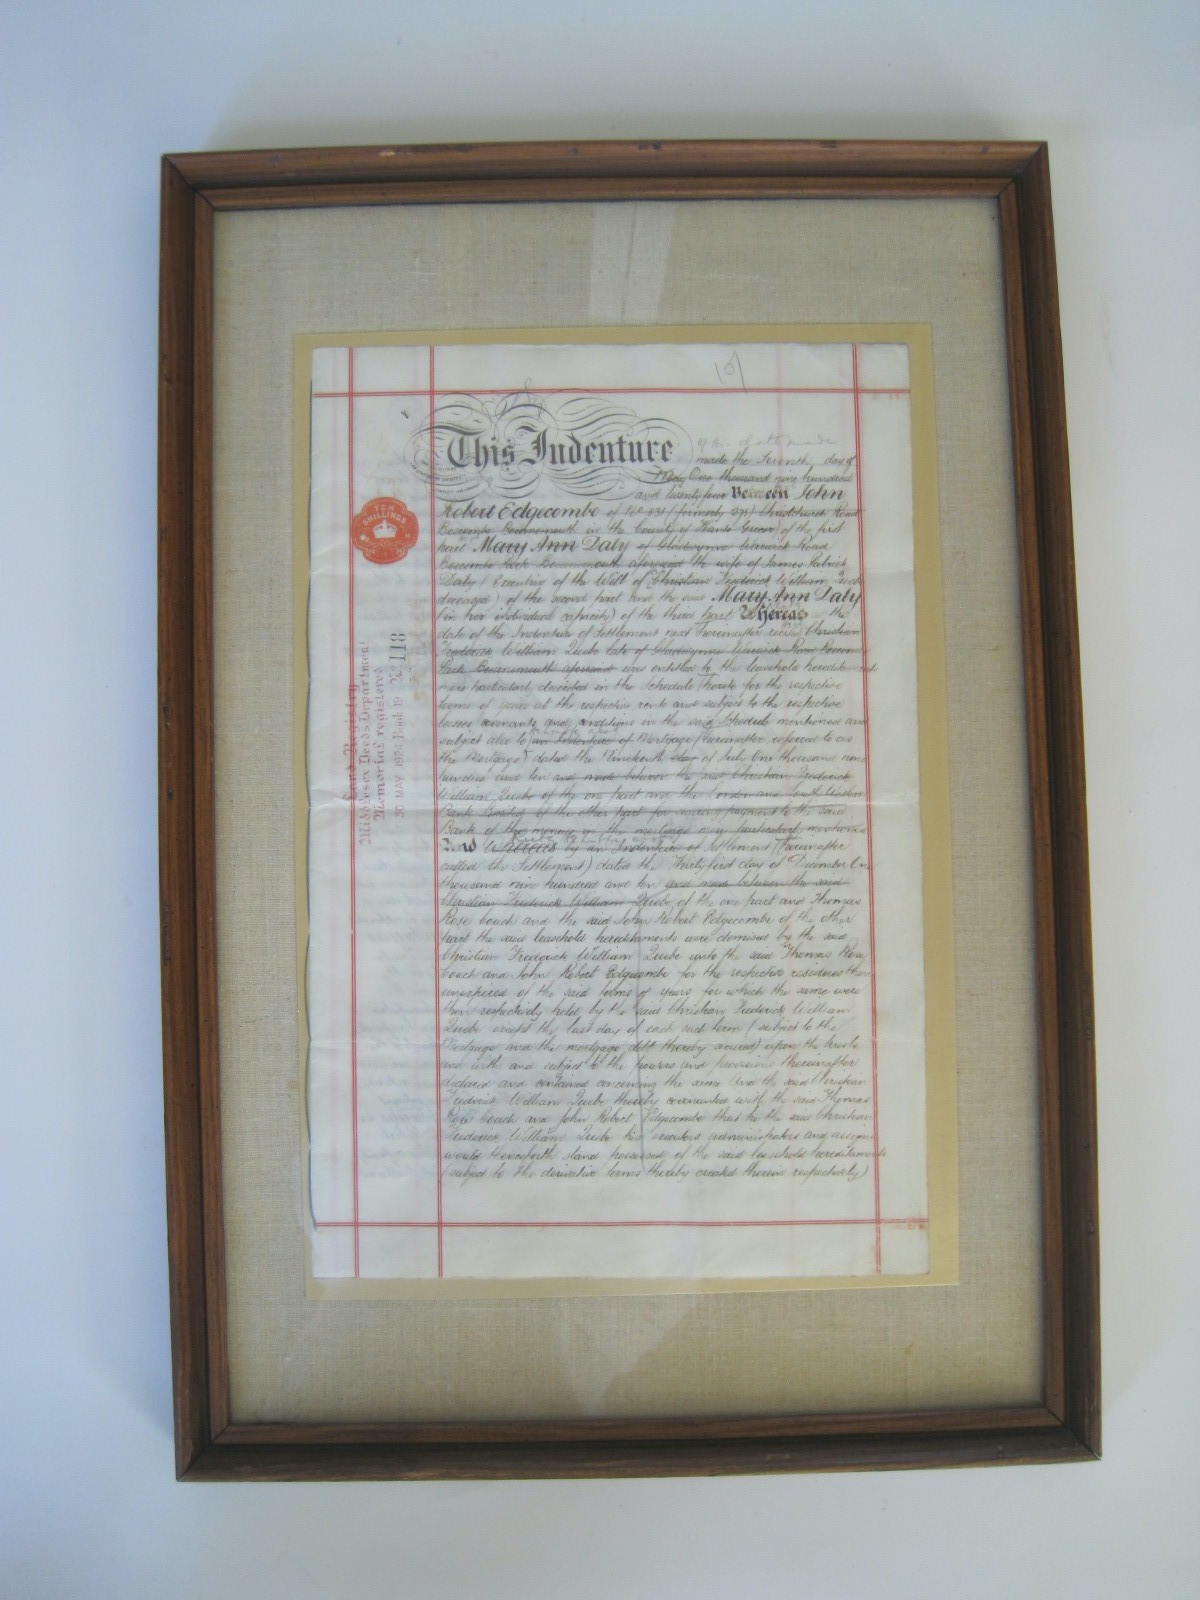 15/
This Indenture
made the Seventh day of
May One thousand nine hundred
and twenty four Between John
Robert Edgecombe of (formerly Christchurch Road
Boscombe Bournemouth in the County of Hants Grocer) of the first
part Mary Ann Daly of Gladwyns Warwick Road
Boscombe Park Bournemouth aforesaid the wife of James Patrick
Daly (Executrix of the Will of Christian Frederick William Quebe
deceased) of the second part and the said Mary Ann Daly
(in her individual capacity) of the third part Whereas at the
date of the Indenture of Settlement next hereinafter recited Christian
Frederick William Quebe late of Gladwyns Warwick Road Boscombe
Park Bournemouth aforesaid was entitled to the leasehold hereditaments
more particularly described in the Schedule hereto for the respective
terms of years at the respective rents and subject to the respective
lessees covenants and conditions in the said Schedule mentioned and
subject also to an Indenture of Mortgage (hereinafter referred to as
the Mortgage) dated the Nineteenth day of July One thousand nine
hundred and ten and made between the said Christian Frederick
William Quebe of the one part and the London and South Western
Bank Limited of the other part for securing payment to the said
Bank of the moneys in the mortgage more particularly mentioned
And Whereas by an Indenture of Settlement (hereinafter
called the Settlement) dated the Thirty first day of December One
thousand nine hundred and ten and made between the said
Christian Frederick William Quebe of the one part and Thomas
Rose Couch and the said John Robert Edgecombe of the other
part the said leasehold hereditaments were demised by the said
Christian Frederick William Quebe unto the said Thomas Rose
Couch and John Robert Edgecombe for the respective residues then
unexpired of the said terms of years for which the same were
then respectively held by the said Christian Frederick William
Quebe except the last day of each such term (subject to the
Mortgage and the mortgage debt thereby secured) upon the trusts
and with and subject to the powers and provisions thereinafter
declared and contained concerning the same And the said Christian
Frederick William Quebe thereby covenanted with the said Thomas
Rose Couch and John Robert Edgecombe that he the said Christian
Frederick William Quebe his executors administrators and assigns
would thenceforth stand possessed of the said leasehold hereditaments
(subject to the derivative terms thereby created therein respectively)
TEN
SHILLINGS
Land Registry
Middlesex Deeds Department
Memorial registered
30 MAY 1924 Book 19 No 118